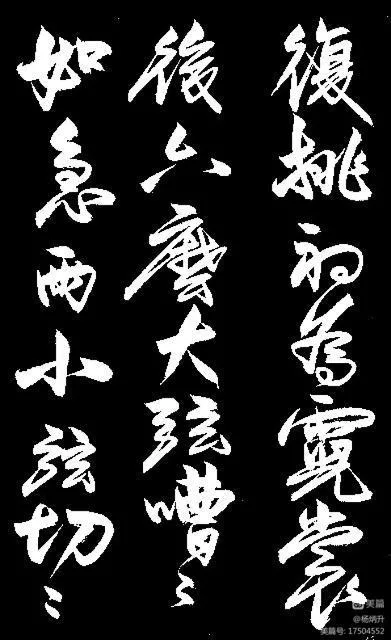 復挑初為霓裳
後六麼大弦嘈〻
如急雨小弦切〻
美篇
@杨炳升
美篇号: 17504552